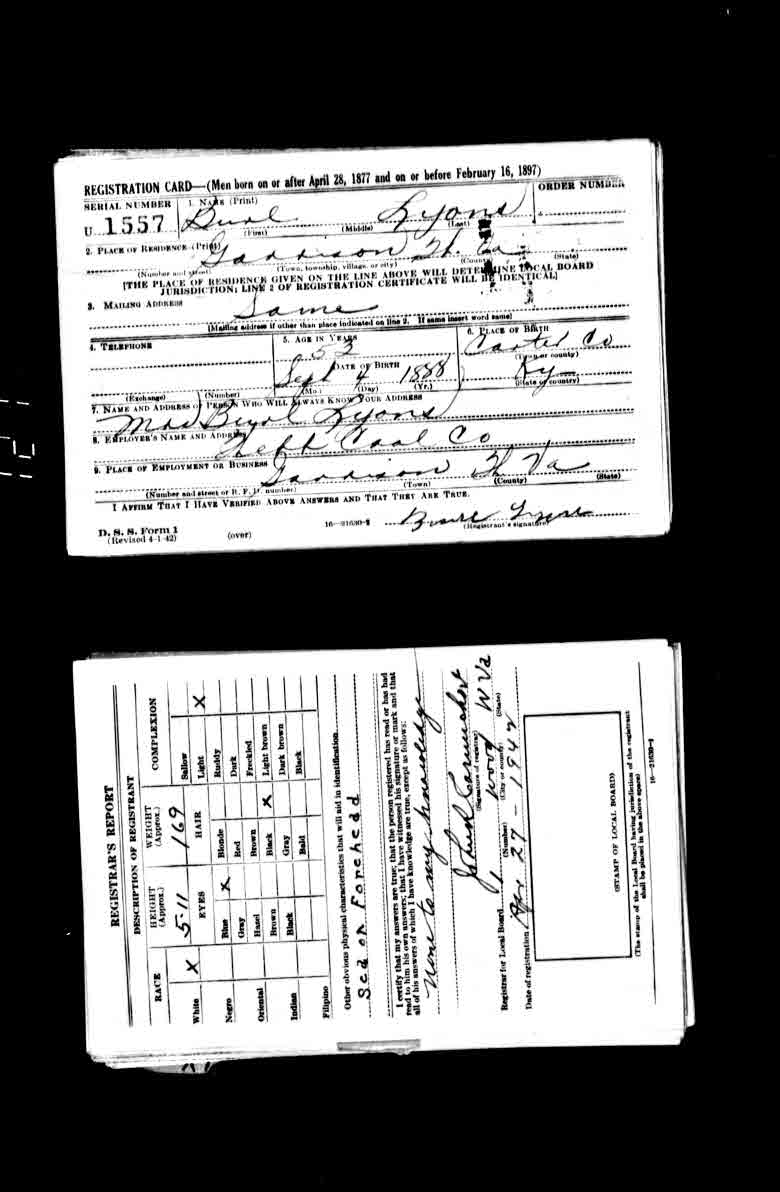 REGISTRATION CARD—(Men born on or after April 28, 1877 and on or before February 16, 1897)
SERIAL NUMBER 1. NAME (Print) ORDER NUMBER
U 1557 Lyons
(First) (Middle) (Last)
2. PLACE OF RESIDENCE (Print)
(Number and street) (Town, township, village, or city) (County) (State)
[THE PLACE OF RESIDENCE GIVEN ON THE LINE ABOVE WILL DETERMINE LOCAL BOARD
JURISDICTION; LINE 2 OF REGISTRATION CERTIFICATE WILL BE IDENTICAL]
3. MAILING ADDRESS
Same
[Mailing address if other than place indicated on line 2. If same insert word same]
4. TELEPHONE 5. AGE IN YEARS 6. PLACE OF BIRTH
53 Carter Co
DATE OF BIRTH (Town or county)
Sept 4 1888 Ky
(Exchange) (Number) (Mo.) (Day) (Yr.) (State or country)
7. NAME AND ADDRESS OF PERSON WHO WILL ALWAYS KNOW YOUR ADDRESS
Lyons
8. EMPLOYER'S NAME AND ADDRESS
Coal Co
9. PLACE OF EMPLOYMENT OR BUSINESS
W Va
(Number and street or R. F. D. number) (Town) (County) (State)
I AFFIRM THAT I HAVE VERIFIED ABOVE ANSWERS AND THAT THEY ARE TRUE.
D. S. S. Form 1
(Revised 4-1-42) (over) 16—21630-2 (Registrant's signature)
REGISTRAR'S REPORT
DESCRIPTION OF REGISTRANT
RACE HEIGHT (Approx.) WEIGHT (Approx.) COMPLEXION
White X 5-11 169 Sallow
EYES HAIR Light X
Negro Blue X Blonde Ruddy
Gray Red Dark
Oriental Hazel Brown Freckled
Brown Black X Light brown
Indian Black Gray Dark brown
Bald Black
Filipino
Other obvious physical characteristics that will aid in identification
on Forehead
I certify that my answers are true; that the person registered has read or has had
read to him his own answers; that I have witnessed his signature or mark and that
all of his answers of which I have knowledge are true, except as follows:
None to my knowledge
John
(Signature of registrar)
Registrar for Local Board 1 Wood W Va
(Number) (City or county) (State)
Date of registration Apr 27 - 1942
(STAMP OF LOCAL BOARD)
(The stamp of the Local Board having jurisdiction of the registrant
shall be placed in the above space)
16—21630-2